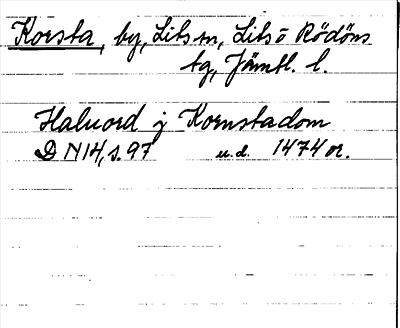 Korsta, by, Lits sn, Lits o Rödöns
tg, Jämtl. l.
Haluord j Kornstadom
DN 14, s. 97 u.d. 1474 or.